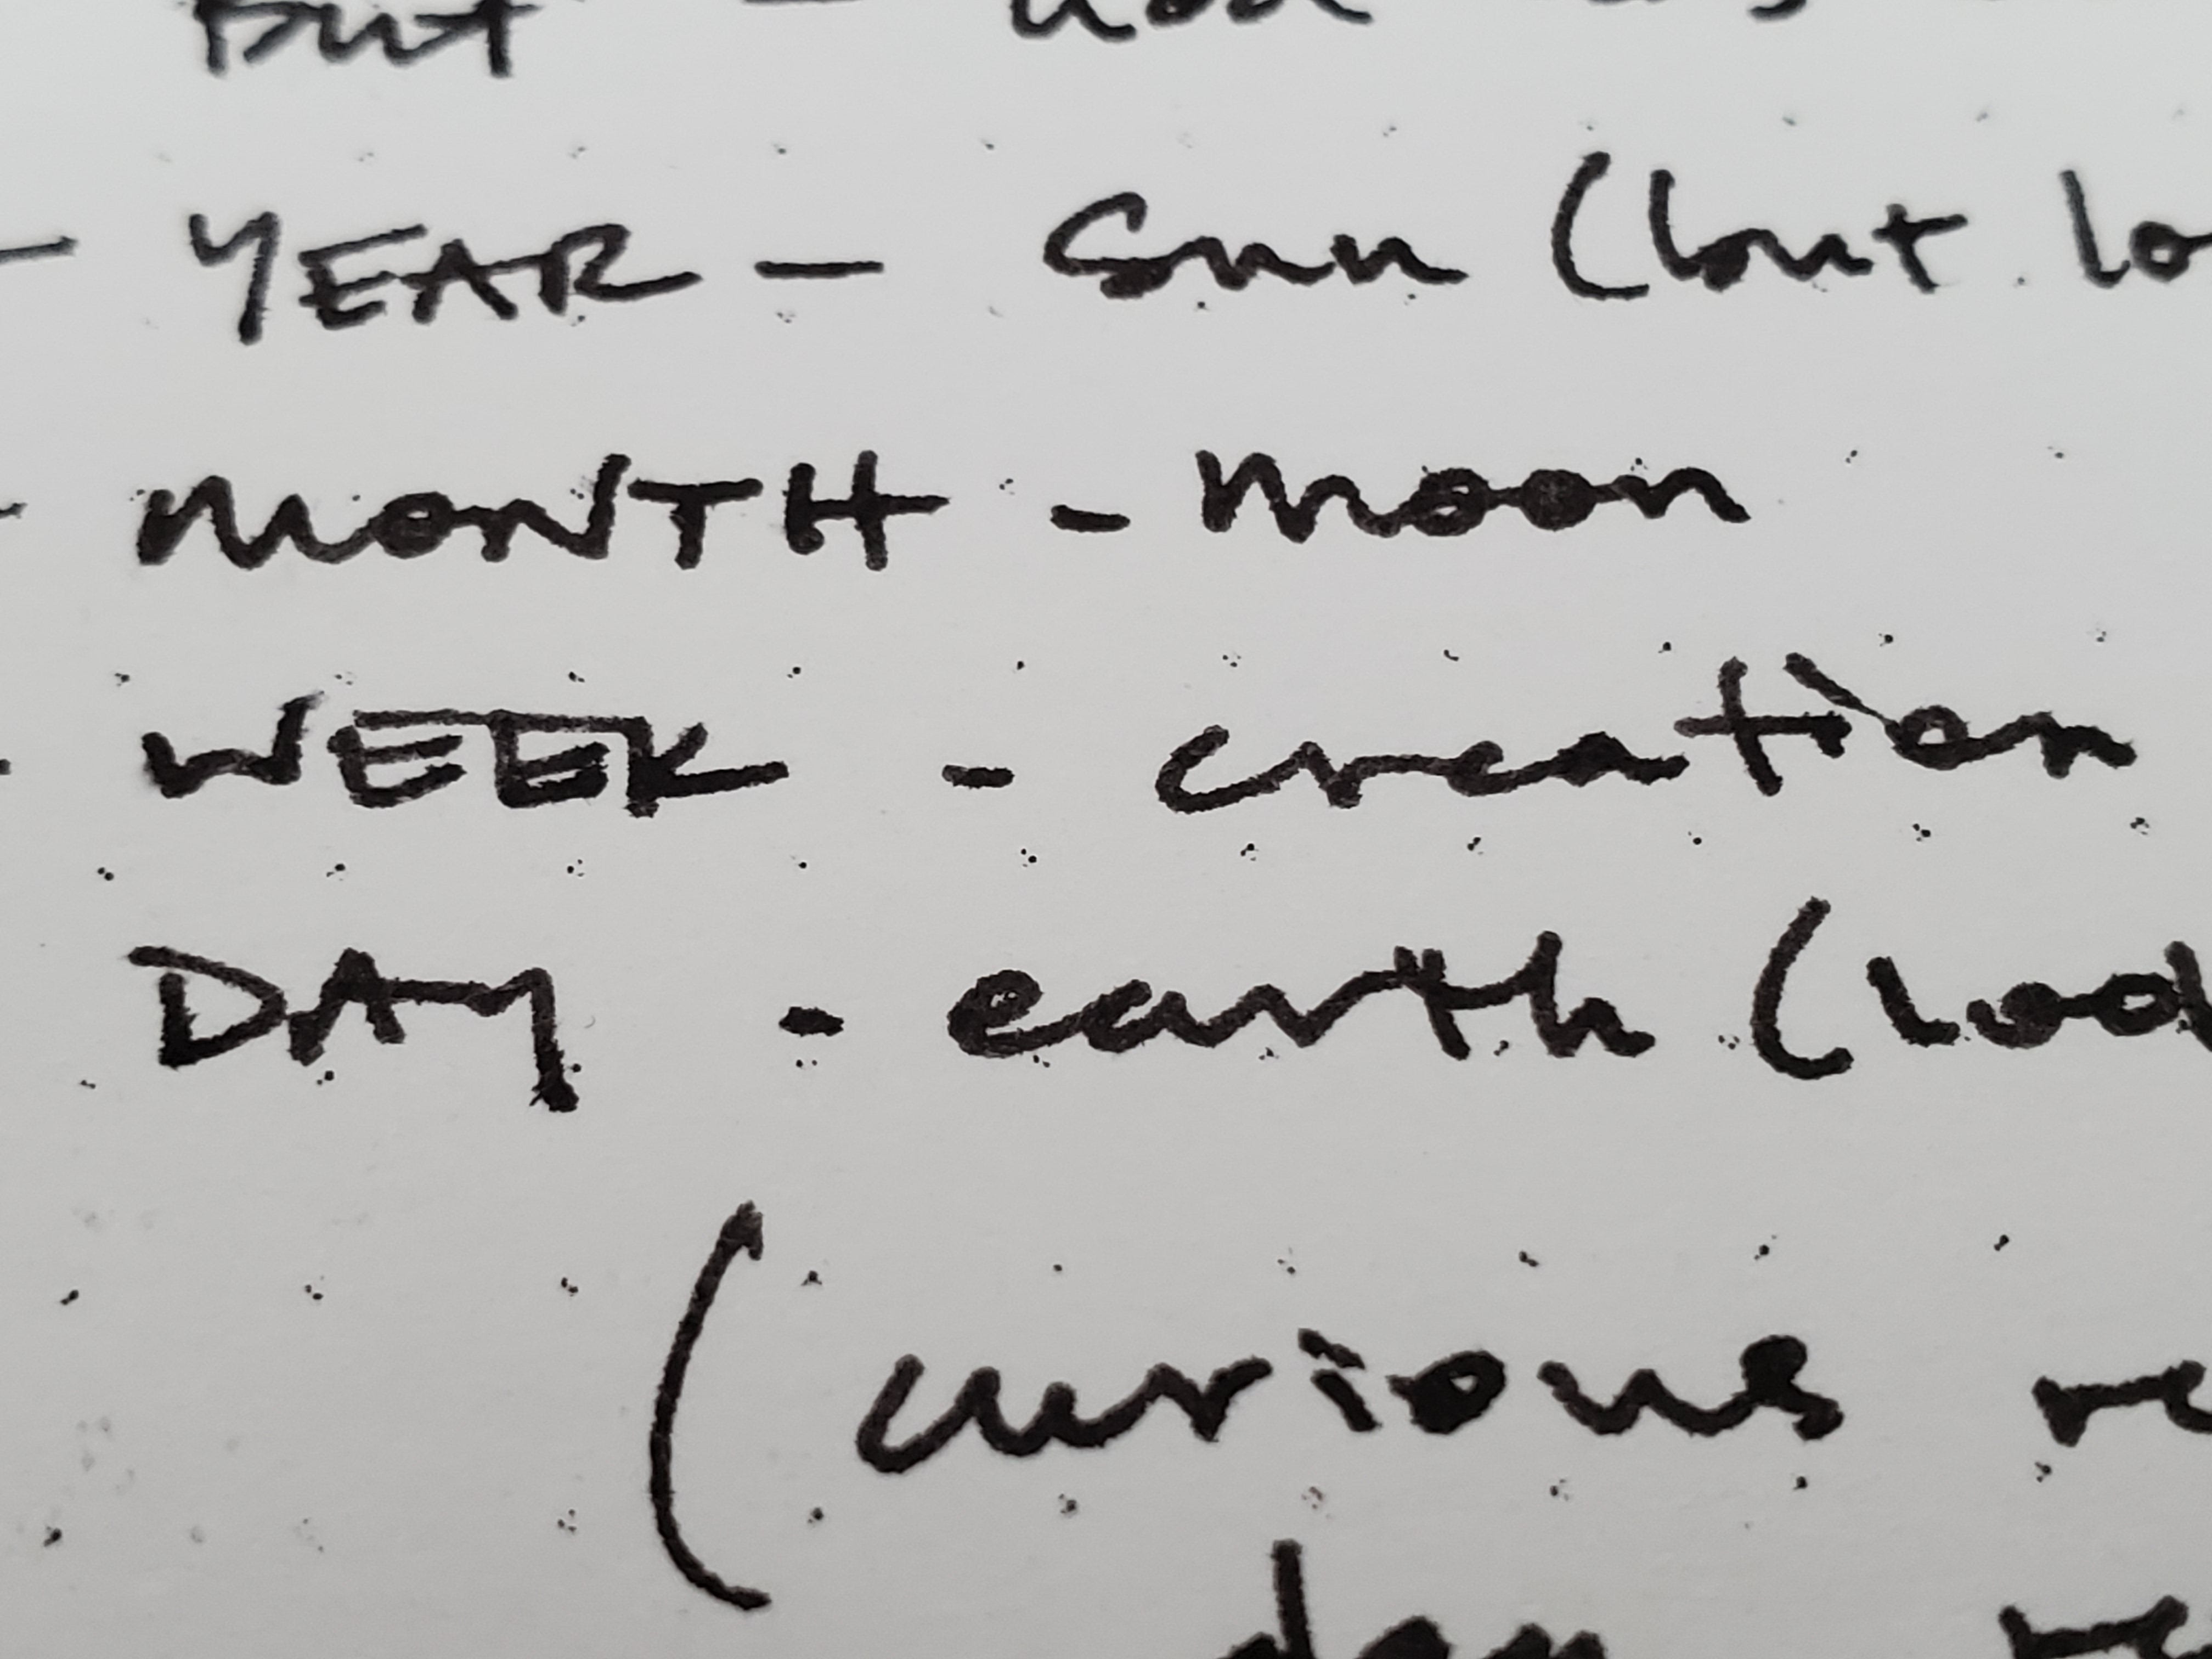 but -
- YEAR - Sun (but lo
- MONTH - moon
- WEEK - creation
DAY - earth (
(curious re
day re